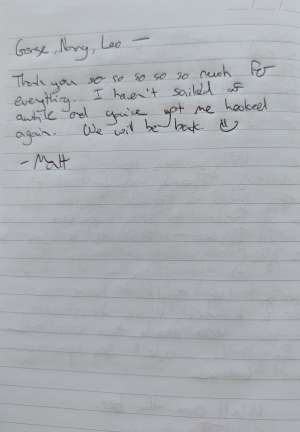 George, Nancy, Leo —
Thank you so so so so so much for
everything. I haven't sailed in
awhile and you've got me hooked
again. We will be back
- Matt